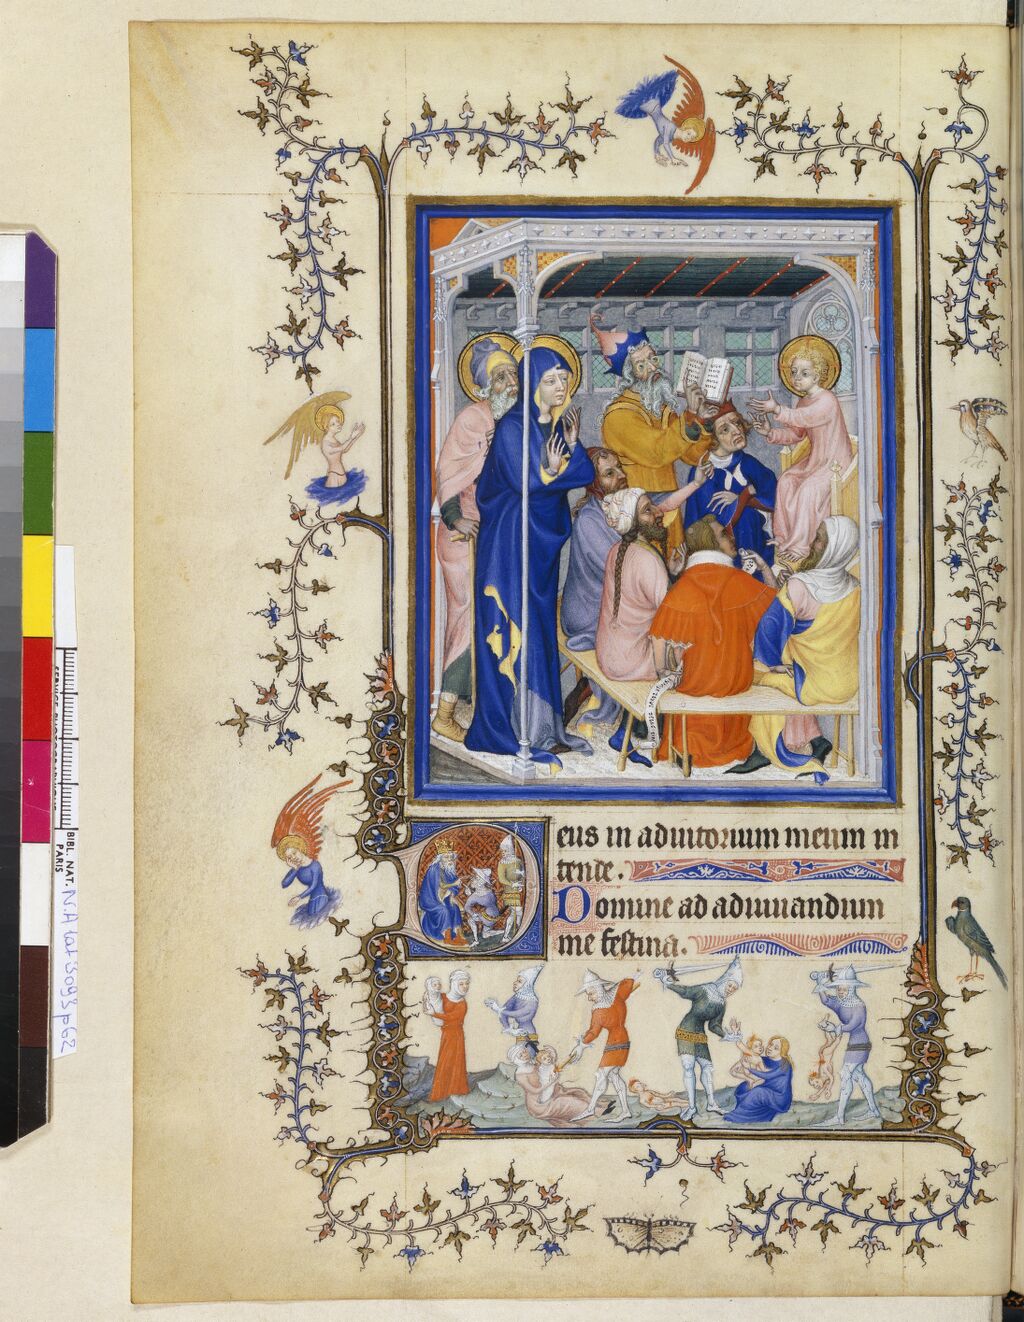 eus in adiutorium meum in
tende.
Domine ad adiuuandum
me festina.
BIBL. NAT.
PARIS
N.A lat 3093 p62